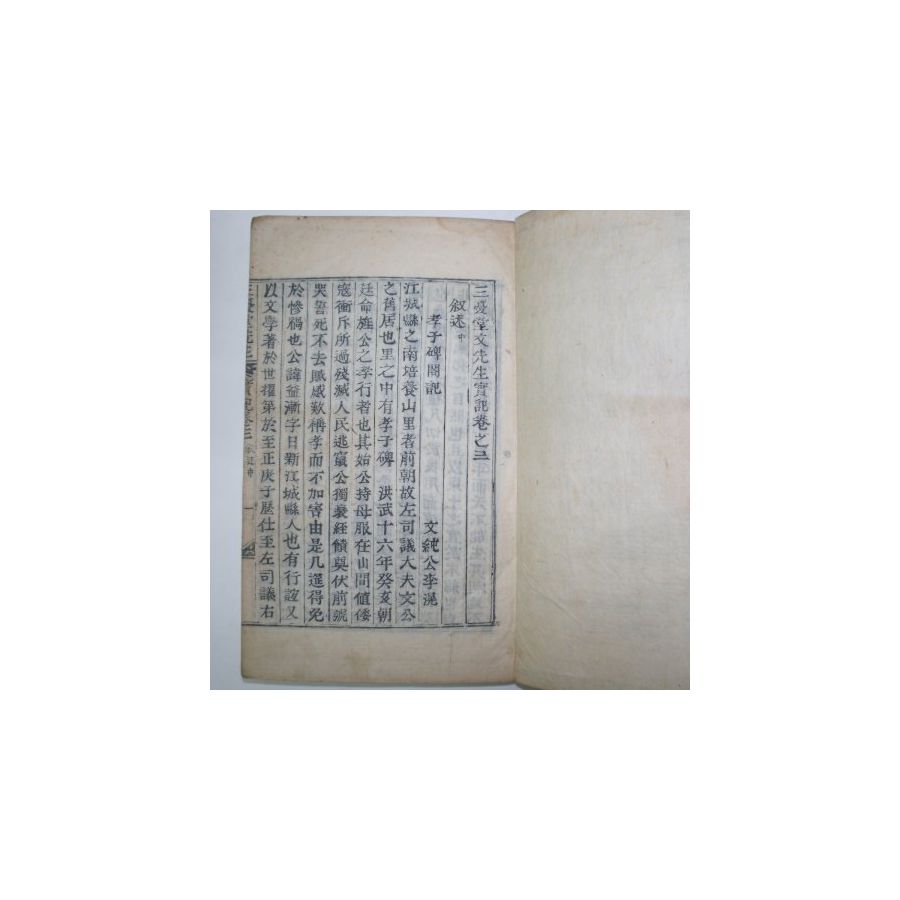 三憂堂文先生實記卷之三
叙述中
孝子碑閣記
文純公李滉
江城縣之南培養山里者前朝故左司議大夫文公
之舊居也里之中有孝子碑 洪武十六年癸亥朝
廷命旌公之孝行者也其始公持母服在山間値倭
寇衝斥所過殘滅人民逃竄公獨衰絰饋奠伏前號
哭誓死不去賊感歎稱孝而不加害由是几筵得免
於慘禍也公諱益漸字日新江城縣人也有行誼又
以文學著於世擢第於至正庚子歷仕至左司議右